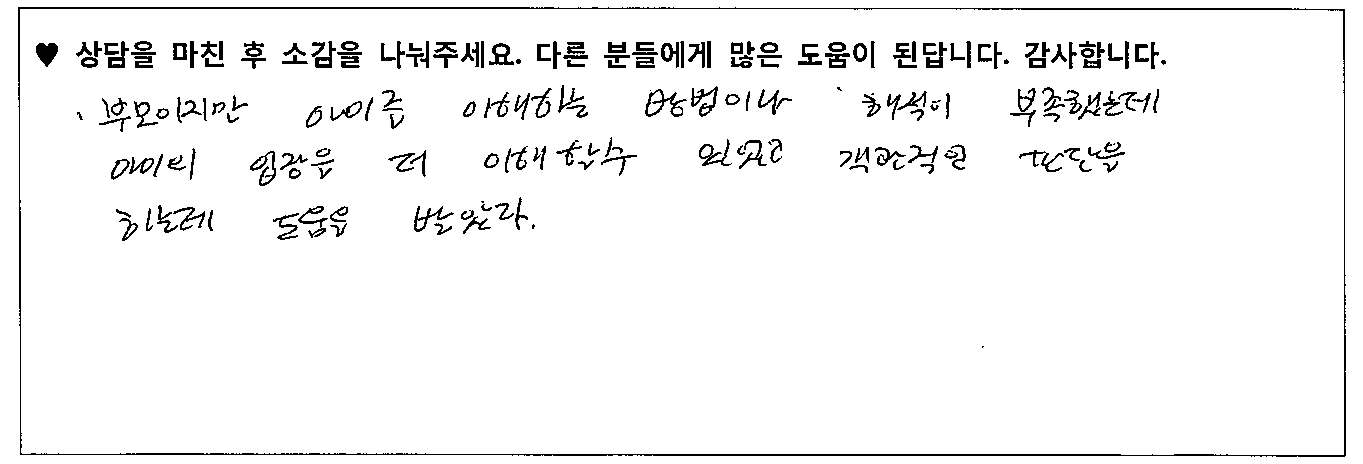 ♥ 상담을 마친 후 소감을 나눠주세요. 다른 분들에게 많은 도움이 된답니다. 감사합니다.
부모이지만 아이를 이해하는 방법이나 해석이 부족했는데
아이의 입장을 더 이해할수 있었고 객관적인 판단을
하는데 도움을 받았다.